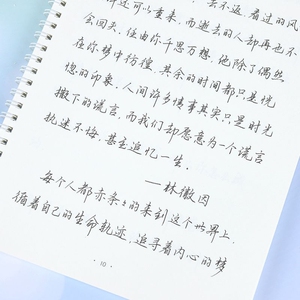 许还可以重来,而逝去的人却再也不
会回头,任由你千思万想,他除了偶然
在你梦中彷徨,其余的时间都只是恍
惚的印象。人间许多情事其实只是时光
撒下的谎言,而我们却愿意为一个谎言
执迷不悔,甚至追忆一生。
——林徽因
每个人都赤条条的来到这个世界上,
循着自己的生命轨迹,追寻着内心的梦
10